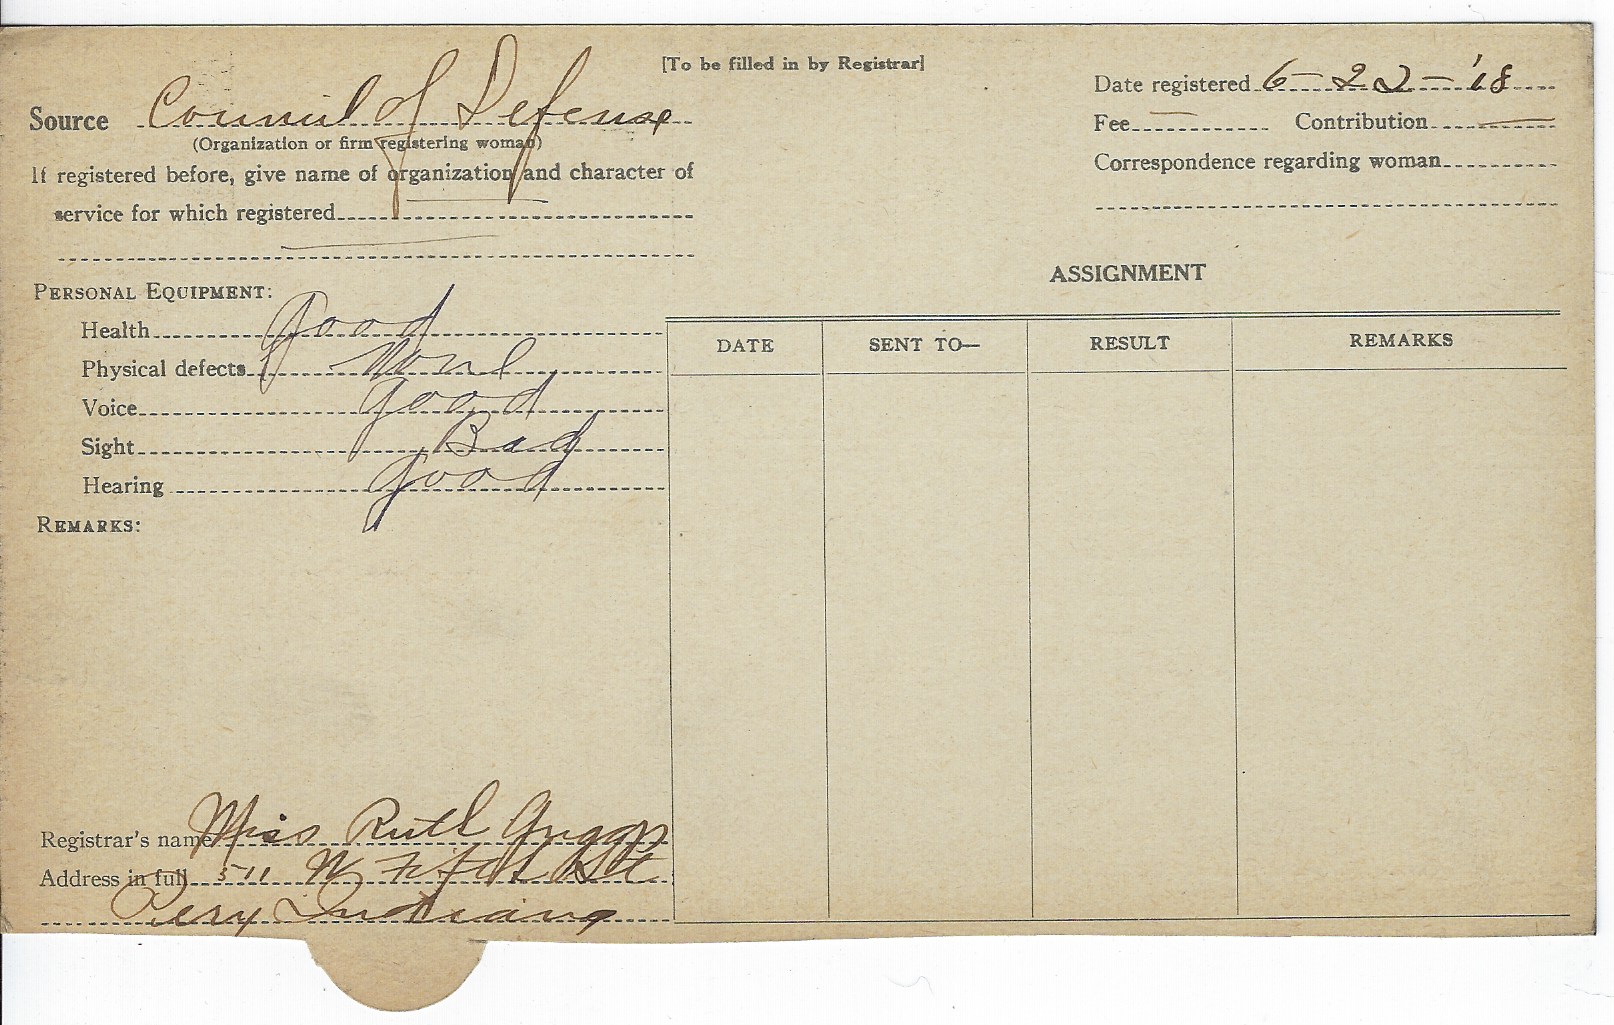 [To be filled in by Registrar]
Source Council of Defense
(Organization or firm registering woman)
If registered before, give name of organization and character of
service for which registered
Date registered 6-22-'18
Fee — Contribution —
Correspondence regarding woman
PERSONAL EQUIPMENT:
Health Good
Physical defects None
Voice Good
Sight Bad
Hearing Good
REMARKS:
ASSIGNMENT
DATE SENT TO— RESULT REMARKS
Registrar's name Miss Ruth Griggs
Address in full 511 W Fifth St
Peru Indiana